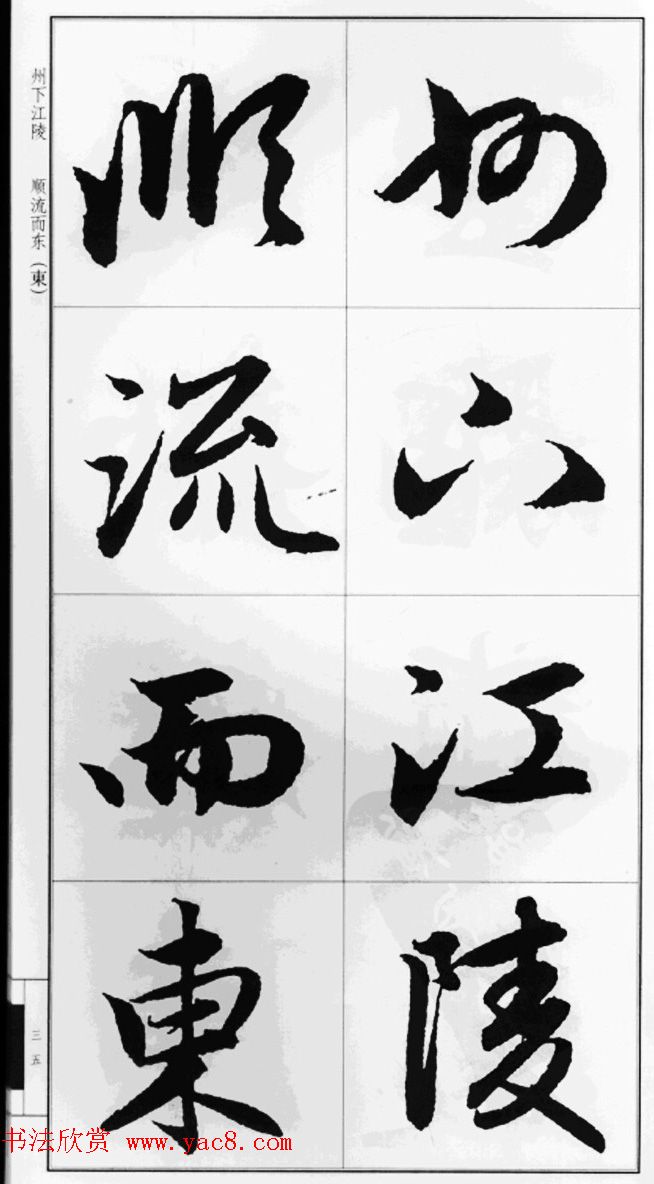 州下江陵
顺流而東
州下江陵 顺流而东（東）
三五
书法欣赏 www.yac8.com